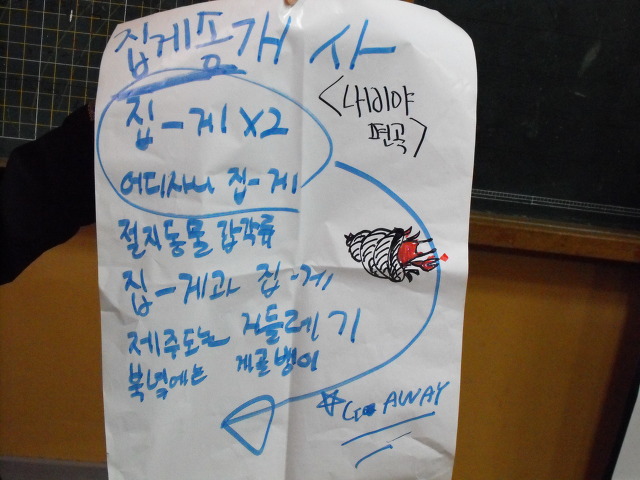 집게송 개사
<내리야
편곡>
집-게 X2
어디사나 집-게
절지동물 갑각류
집-게과 집-게
제주도는 거들레기
북녘에는 게골뱅이
AWAY